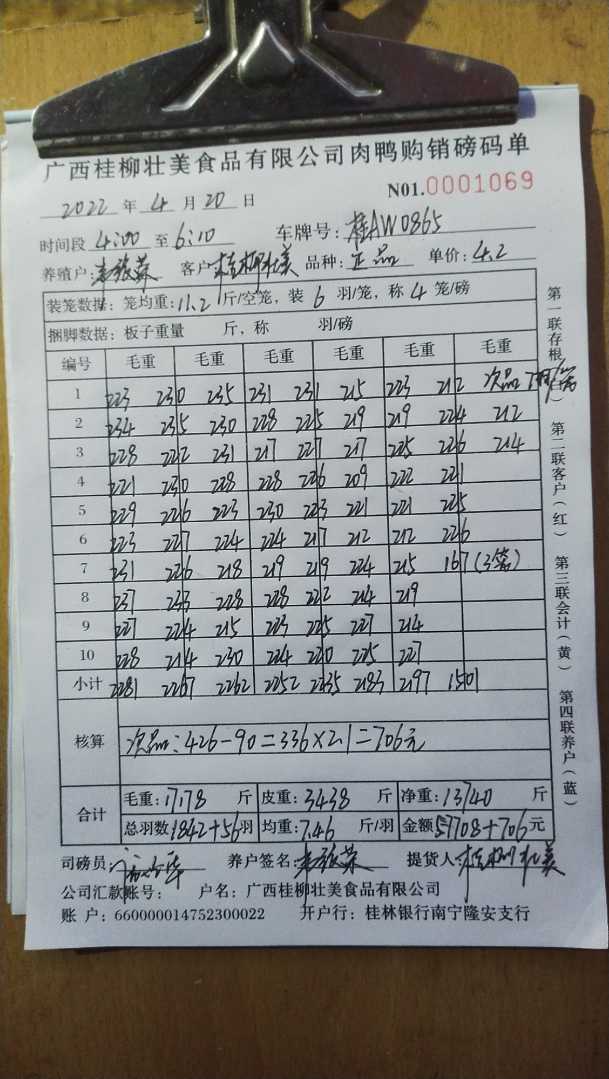 广西桂柳壮美食品有限公司肉鸭购销磅码单
2022 年 4 月 20 日 N01.0001069
时间段 4:00 至 6:10 车牌号: 桂AW0865
养殖户: 客户 桂柳壮美 品种: 正品 单价: 4.2
装笼数据: 笼均重: 11.2 斤/空笼, 装 6 羽/笼, 称 4 笼/磅
捆脚数据: 板子重量 斤, 称 羽/磅
编号 毛重 毛重 毛重 毛重 毛重 毛重
1 223 230 235 231 231 215 223 212 次品
2 234 235 230 228 225 219 219 224 212
3 228 222 231 217 227 217 225 226 214
4 221 230 228 228 226 209 222 221
5 229 226 223 230 223 221 221 225
6 223 227 224 224 217 212 212 226
7 231 226 218 219 219 224 215 167 (3笼)
8 237 233 228 228 222 214 219
9 227 224 215 223 225 227 214
10 228 214 230 224 220 225 227
小计 2281 2267 2262 2252 2235 2183 2197 1501
核算 次品: 426-90=336×2.1=706元
合计 毛重: 17178 斤 皮重: 3438 斤 净重: 13740 斤
总羽数 1842+56 羽 均重: 7.46 斤/羽 金额 57708+706 元
司磅员: 养户签名: 提货人: 桂柳壮美
公司汇款账号: 户名: 广西桂柳壮美食品有限公司
账 户: 660000014752300022 开户行: 桂林银行南宁隆安支行
第一联存根(
第二联客户(红)
第三联会计(黄)
第四联养户(蓝)